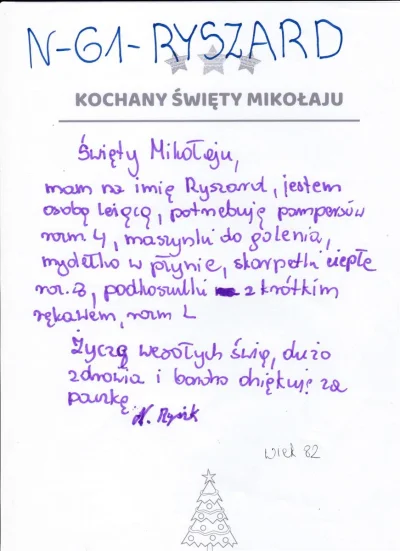 N-G1-RYSZARD
KOCHANY ŚWIĘTY MIKOŁAJU
Święty Mikołaju,
mam na imię Ryszard, jestem
osobą leżącą, potrzebuję pampersów
rozm 4, maszynki do golenia,
mydełko w płynie, skarpetki ciepłe
roz. 3, podkoszulki z krótkim
rękawem, rozm L
Życzę wesołych świę, dużo
zdrowia i bardzo dziękuję za
paczkę
wiek 82